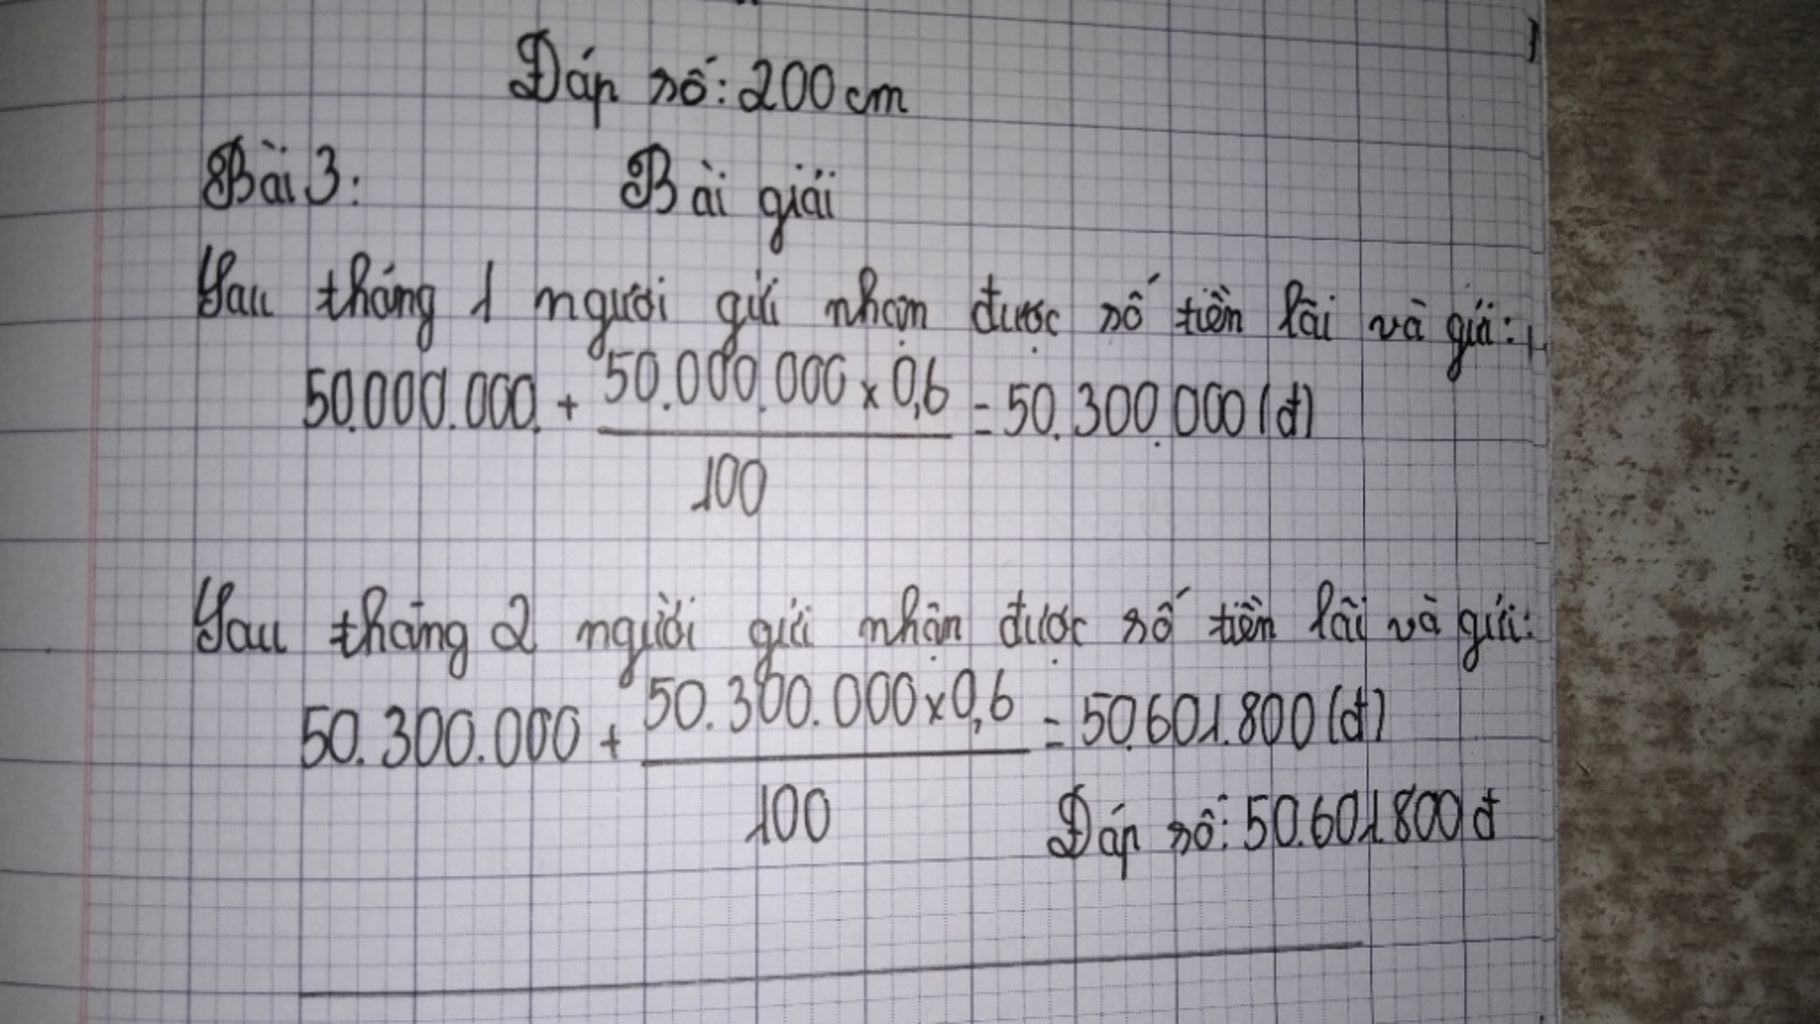 Đáp số: 200cm
Bài 3: Bài giải
Sau tháng 1 người gửi nhận được số tiền lãi và gửi:
50.000.000 + 50.000.000 x 0,6 / 100 = 50.300.000 (đ)
Sau tháng 2 người gửi nhận được số tiền lãi và gửi:
50.300.000 + 50.300.000 x 0,6 / 100 = 50.601.800 (đ)
Đáp số: 50.601.800 đ